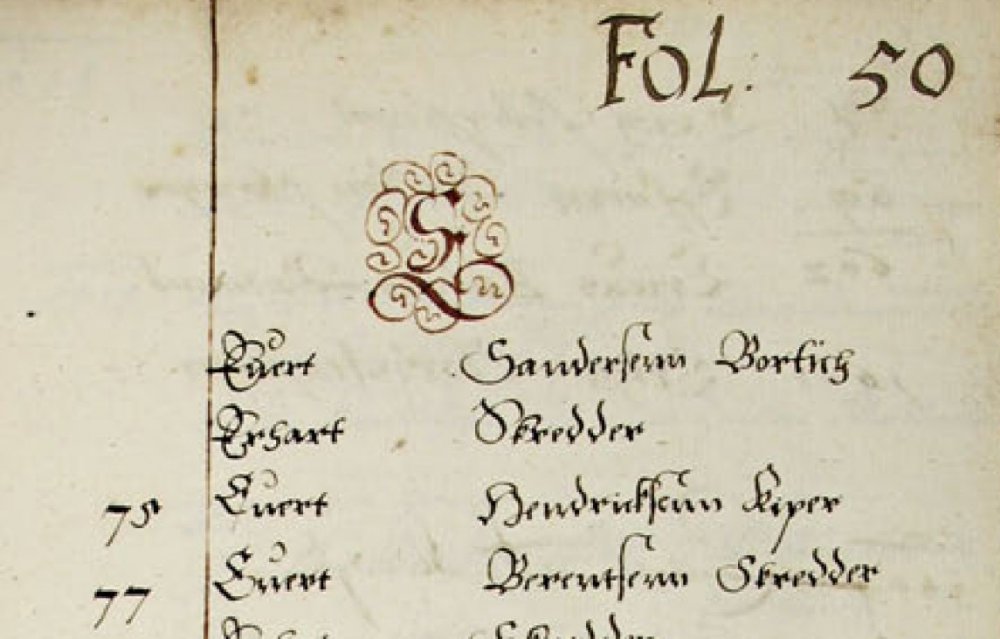 FOL. 50
E
Euert Sandersenn Bortich
Erhart Skredder
75 Euert Hendricksenn Kiper
77 Euert Berentsenn Skredder
Skredder